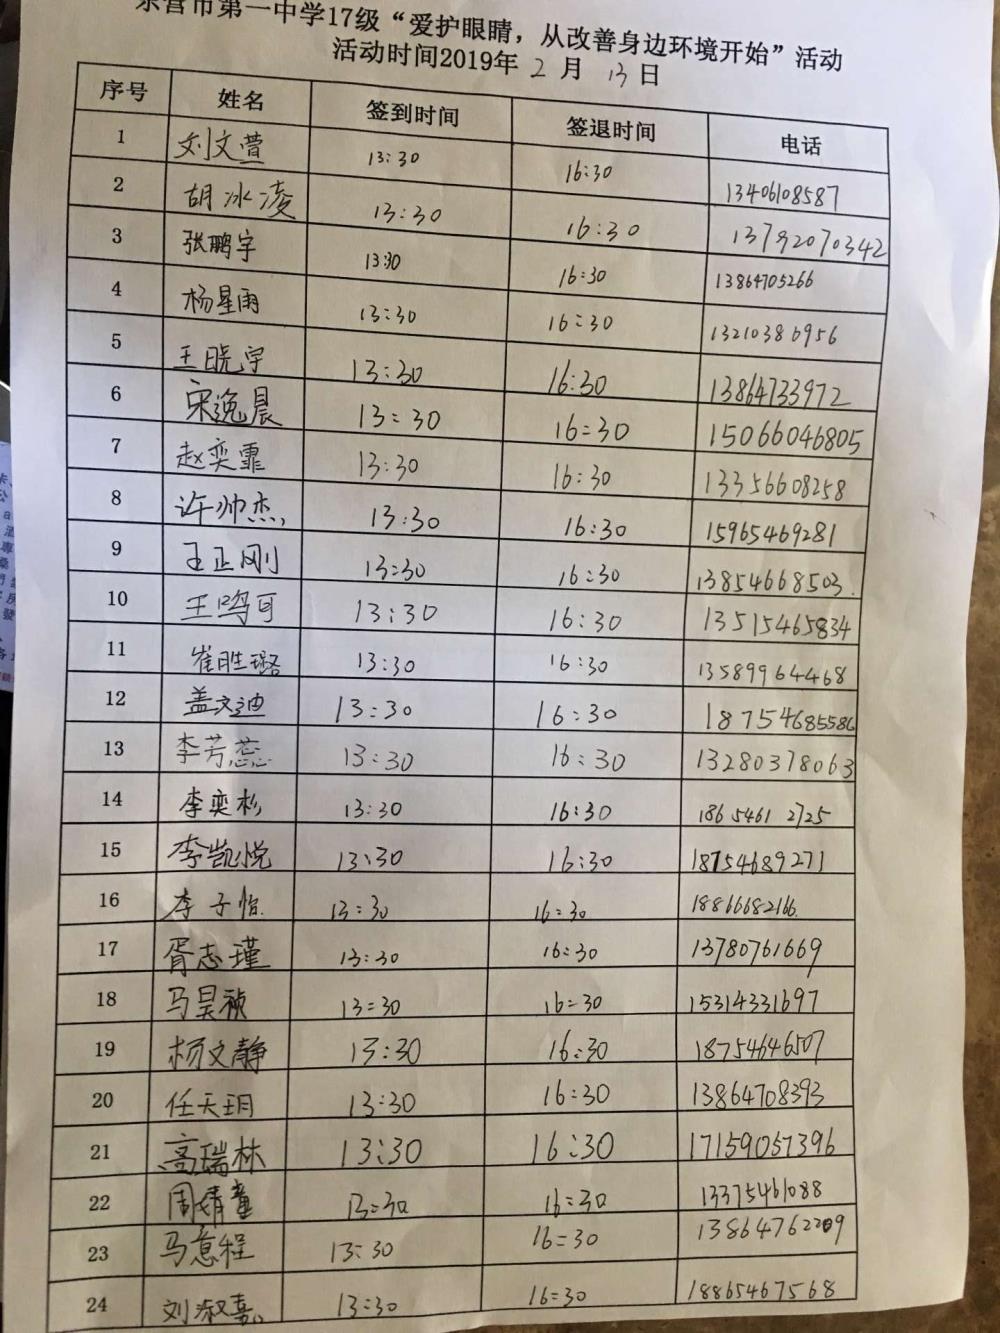 东营市第一中学17级“爱护眼睛，从改善身边环境开始”活动
活动时间2019年 2 月 13 日
序号 姓名 签到时间 签退时间 电话
1 刘文萱 13:30 16:30 13406108587
2 胡冰凌 13:30 16:30 13792070342
3 张鹏宇 13:30 16:30 13864705266
4 杨星雨 13:30 16:30 13210386956
5 王晓宇 13:30 16:30 13864733972
6 宋逸晨 13:30 16:30 15066046805
7 赵奕霏 13:30 16:30 13356608258
8 许帅杰 13:30 16:30 15965469281
9 王正刚 13:30 16:30 13854668503
10 王鸣可 13:30 16:30 13515465834
11 崔胜璐 13:30 16:30 13589964468
12 盖文迪 13:30 16:30 18754685586
13 李芳蕊 13:30 16:30 13280378063
14 李奕杉 13:30 16:30 18654612725
15 李凯悦 13:30 16:30 18754689271
16 李子怡 13:30 16:30 18866682166
17 胥志瑾 13:30 16:30 13780761669
18 马昊祯 13:30 16:30 15314331697
19 杨文静 13:30 16:30 18754646507
20 任天玥 13:30 16:30 13864708393
21 高瑞林 13:30 16:30 17159057396
22 周靖童 13:30 16:30 13375461088
23 马意程 13:30 16:30 13864762209
24 刘淑熹 13:30 16:30 18865467568